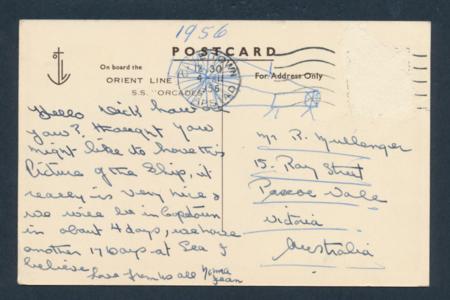 1956
POSTCARD
On board the
ORIENT LINE
S.S. "ORCADES"
For Address Only
Hello Dick how is
you? thought you
might like to have this
Picture of the Ship, it
really is very nice &
we will be in Capetown
in about 4 days, we have
another 17 Days at Sea I
believe Love from us all
Jean
Mr R. Mullenger
15. Ray Street
Pascoe Vale
Victoria
Australia